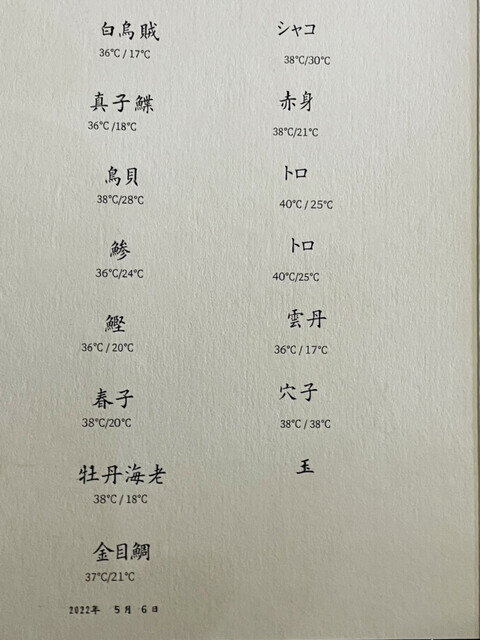 白烏賊
36℃ / 17℃
真子鰈
36℃ /18℃
鳥貝
38℃/28℃
鯵
36℃/24℃
鰹
36℃ / 20℃
春子
38℃/20℃
牡丹海老
38℃ / 18℃
金目鯛
37℃/21℃
2022年 5月 6日
シャコ
38℃/30℃
赤身
38℃/21℃
トロ
40℃ / 25℃
トロ
40℃/25℃
雲丹
36℃ / 17℃
穴子
38℃ / 38℃
玉